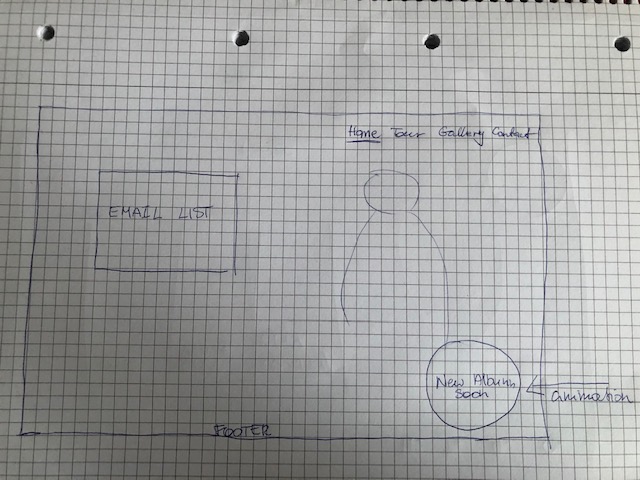 Home Tour Gallery Contact
EMAIL LIST
New Album
Soon
animation
FOOTER